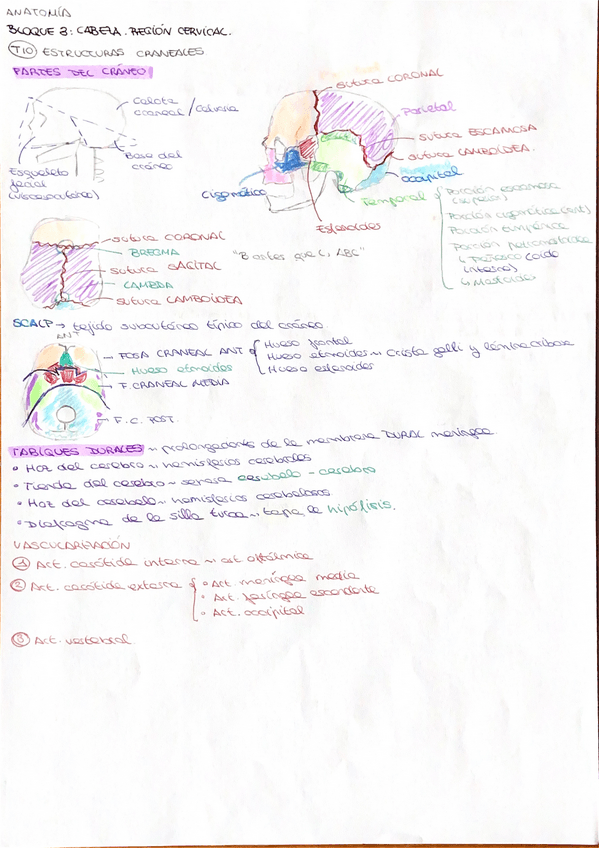 ANATOMÍA
BLOQUE 3: CABEZA. REGIÓN CERVICAL.
T10 ESTRUCTURAS CRANEALES
PARTES DEL CRÁNEO
Calota
craneal / Calvaria
Base del
cráneo
Esqueleto
facial
(viscerocráneo)
sutura CORONAL
Parietal
sutura ESCAMOSA
sutura LAMBOIDEA.
occipital
Cigomático
Esfenoides
Temporal
Porción escamosa
Porción cigomática (ant)
Porción timpánica
Porción petromastoidea
↳ Peñasco (oído
interno)
↳ Mastoides
sutura CORONAL
BREGMA
sutura SAGITAL
LAMBDA
sutura LAMBOIDEA
"B antes que L, ABC"
SCALP → tejido subcutáneo típico del cráneo
ANT
FOSA CRANEAL ANT
Hueso frontal
Hueso etmoides ~ Crista galli y lámina cribosa
Hueso esfenoides
Hueso etmoides
F. CRANEAL MEDIA
F. C. POST.
TABIQUES DURALES ~ prolongaciones de la membrana DURAL meníngea.
• Hoz del cerebro ~ hemisferios cerebrales
• Tienda del cerebro ~ separa cerebelo - cerebro
• Hoz del cerebelo ~ hemisferios cerebelosos
• Diafragma de la silla turca ~ tapa la hipófisis.
VASCULARIZACIÓN
① Art. carótida interna ~ art. oftálmica
② Art. carótida externa
• Art. meníngea media
• Art. faríngea ascendente
• Art. occipital
③ Art. vertebral